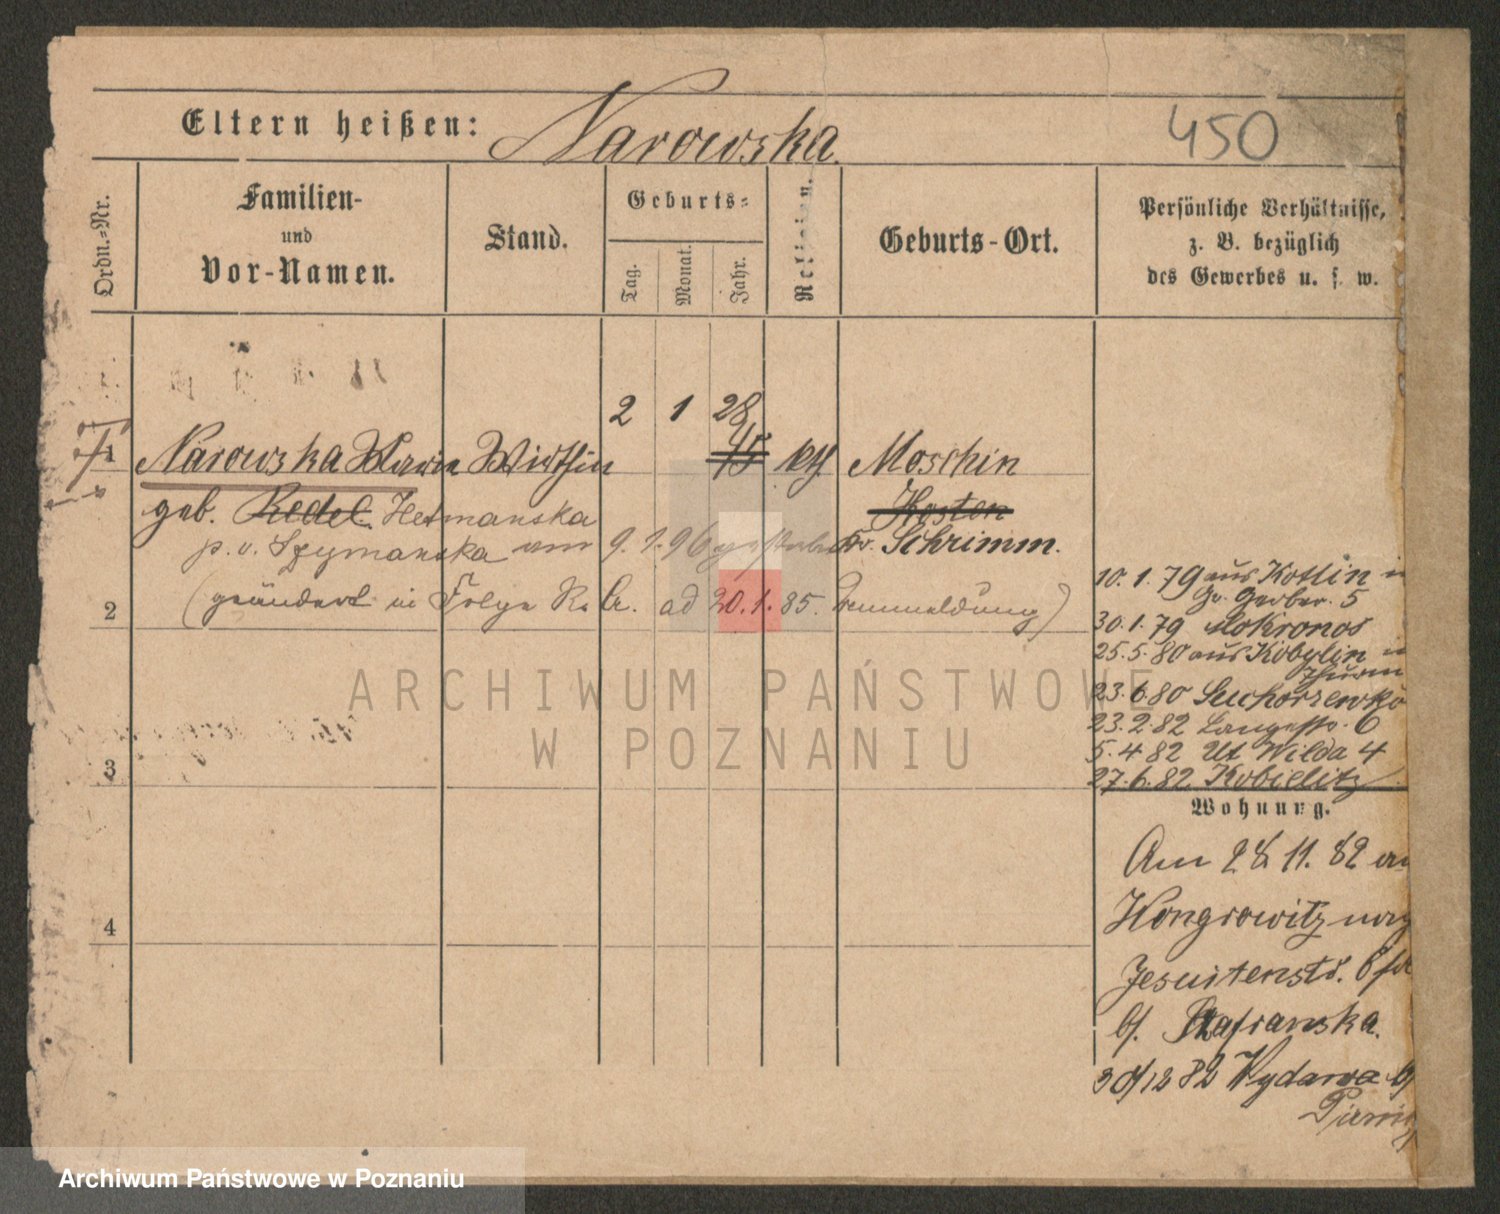 Eltern heißen: Narowska. 450
Ordn.-Nr.
Familien-
und
Vor-Namen.
Stand.
Geburts-
Tag.
Monat.
Jahr.
Religion.
Geburts-Ort.
Persönliche Verhältnisse,
z. B. bezüglich
des Gewerbes u. s. w.
2 1 28
1 Narowska Maria Wirthin 45 kth. Moschin
geb. Redel. Hetmanska Kosten
p. v. Szymanska am 9. 1. 96 gestorben Kr. Schrimm.
2 (geändert in Folge ad 20. 1. 85.
10. 1. 79 aus Kotlin in
Gr. Gerber. 5
30. 1. 79 Mokronos
25. 5. 80 aus Kobylin in
Thurm
23. 6. 80 Suchorzewko
23. 2. 82 Langestr. 6
5. 4 82 Ut Wilda 4
27. 6. 82 Kobielitz
3
Wohnung.
Am 28. 11. 82 aus
Wongrowitz nach
4
Jesuitenstr.
b/. Szafranska.
30/12 82 Wydawa